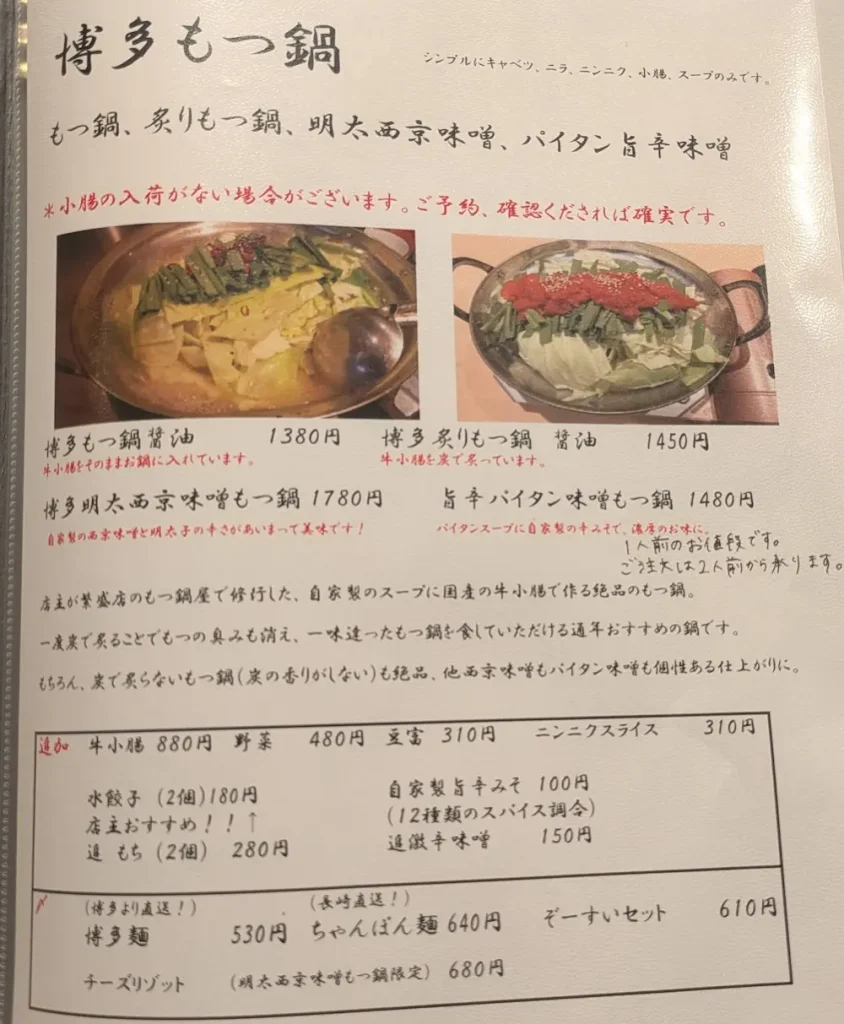 博多もつ鍋
シンプルにキャベツ、ニラ、ニンニク、小腸、スープのみです。
もつ鍋、炙りもつ鍋、明太西京味噌、パイタン旨辛味噌
*小腸の入荷がない場合がございます。ご予約、確認くだされば確実です。
博多もつ鍋醤油 1380円 博多炙りもつ鍋 醤油 1450円
牛小腸をそのままお鍋に入れています。 牛小腸を炭で炙っています。
博多明太西京味噌もつ鍋 1780円 旨辛パイタン味噌もつ鍋 1480円
自家製の西京味噌と明太子の辛さがあいまって美味です! パイタンスープに自家製の辛みそで、濃厚のお味に。
1人前のお値段です。
ご注文は2人前から承ります。
店主が繁盛店のもつ鍋屋で修行した、自家製のスープに国産の牛小腸で作る絶品のもつ鍋。
一度炭で炙ることでもつの臭みも消え、一味違ったもつ鍋を食していただける通年おすすめの鍋です。
もちろん、炭で炙らないもつ鍋(炭の香りがしない)も絶品、他西京味噌もパイタン味噌も個性ある仕上がりに。
追加 牛小腸 880円 野菜 480円 豆富 310円 ニンニクスライス 310円
水餃子 (2個)180円 自家製旨辛みそ 100円
店主おすすめ!!↑ (12種類のスパイス調合)
追 もち (2個) 280円 追激辛味噌 150円
〆 (博多より直送!) (長崎直送!)
博多麺 530円 ちゃんぽん麺 640円 ぞーすいセット 610円
チーズリゾット (明太西京味噌もつ鍋限定) 680円